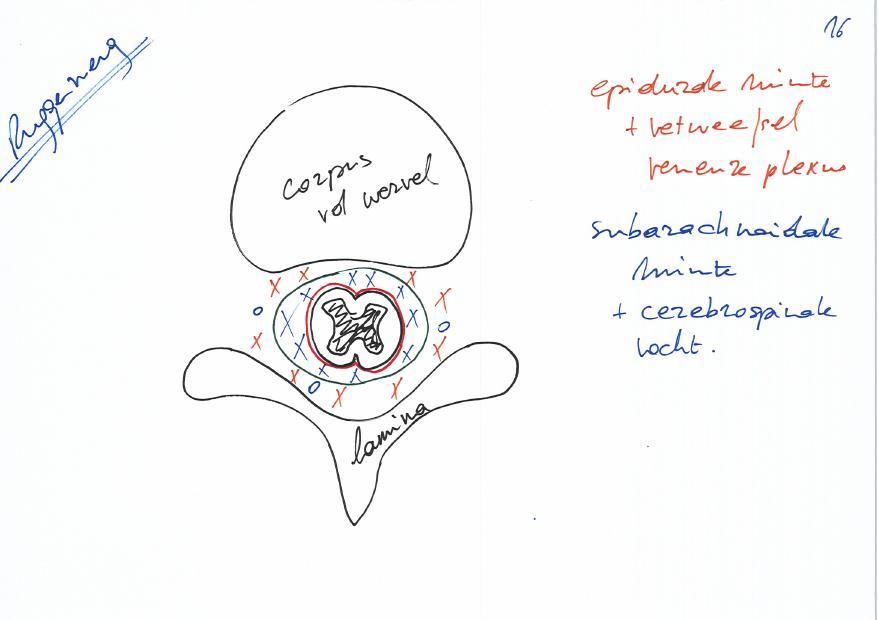 16
Ruggenmerg
epidurale ruimte
+ vetweefsel
veneuze plexus
corpus
vol wervel
subarachnoidale
ruimte
+ cerebrospinale
vocht.
lamina